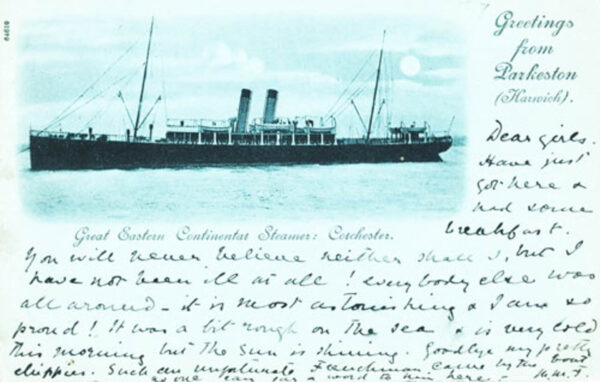 Greetings
from
Parkeston
(Harwich).
Great Eastern Continental Steamer: Colchester.
Dear girls.
Have just
got here &
had some
breakfast.
You will never believe neither shall I, but I
have not been ill at all! Everybody else was
all around - it is most astonishing & I am so
proud! It was a bit rough on the sea & is very cold
this morning but the sun is shining. Goodbye my pretty
chippies. Such an unfortunate Frenchman came by this boat
no one can say a word to him here -